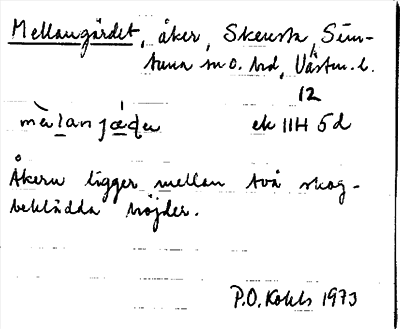 Mellangärdet, åker, Skensta, Sim-
tuna sn o. hd, Västm. l.
12
mèl̲an jǽd̲e̲r ek 11H 5d
Åkern ligger mellan två skog-
beklädda höjder.
P.O. Kohls 1973